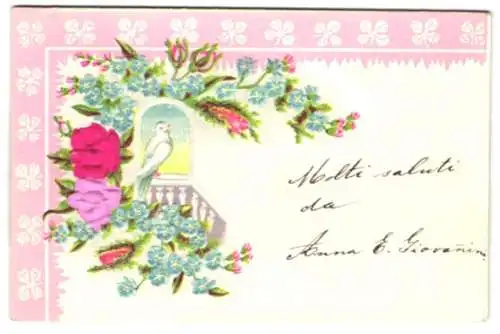 Molti saluti
da
Anna E. Giovañin